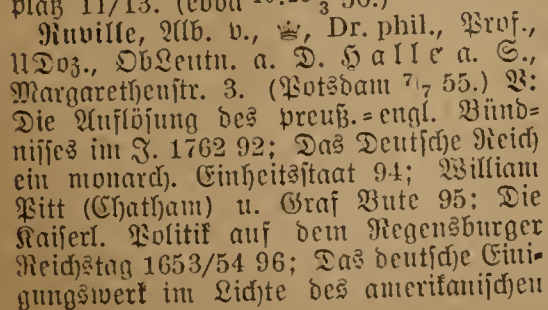 platz 11/13. (ebda 10. 26 3 50.)
Ruville, Alb. v., Dr. phil., Prof.,
UDoz., ObLeutn. a. D. Halle a. S.,
Margarethenstr. 3. (Potsdam 7/7 55.) V:
Die Auflösung des preuß.=engl. Bünd-
nisses im J. 1762 92; Das Deutsche Reich
ein monarch. Einheitsstaat 94; William
Pitt (Chatham) u. Graf Bute 95; Die
Kaiserl. Politik auf dem Regensburger
Reichstag 1653/54 96; Das deutsche Eini-
gungswerk im Lichte des amerikanischen